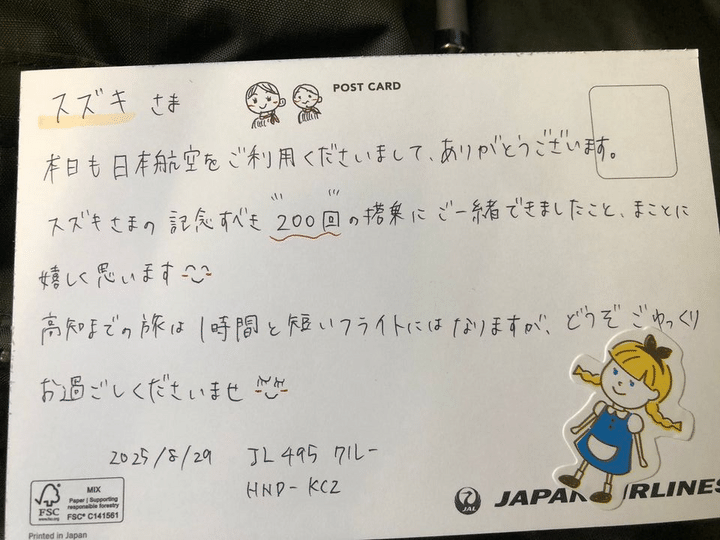 スズキ さま
POST CARD
本日も日本航空をご利用くださいまして、ありがとうございます。
スズキさまの記念すべき 200回 の搭乗にご一緒できましたこと、まことに
嬉しく思います
高知までの旅は1時間と短いフライトにはなりますが、どうぞごゆっくり
お過ごしくださいませ
2025/8/29 JL495 クルー
HND-KCZ
FSC
www.fsc.org
MIX
Paper | Supporting
responsible forestry
FSC® C141561
JAL
JAPAN AIRLINES
Printed in Japan